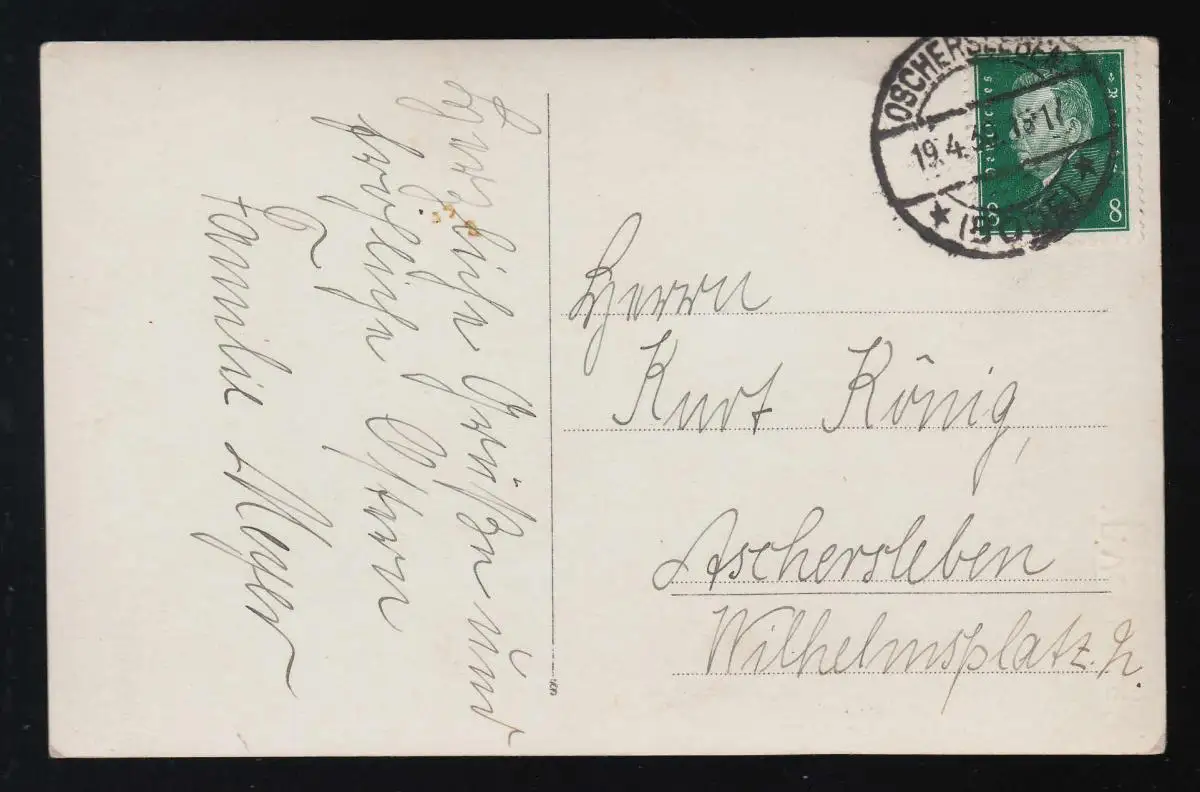 Herzliche Grüße und
fröhliche Ostern
Familie Meyer
OSCHERSLEBEN
19.4.
(BODE)
Deutsches
8
8
Herrn
Kurt König,
Aschersleben
Wilhelmsplatz